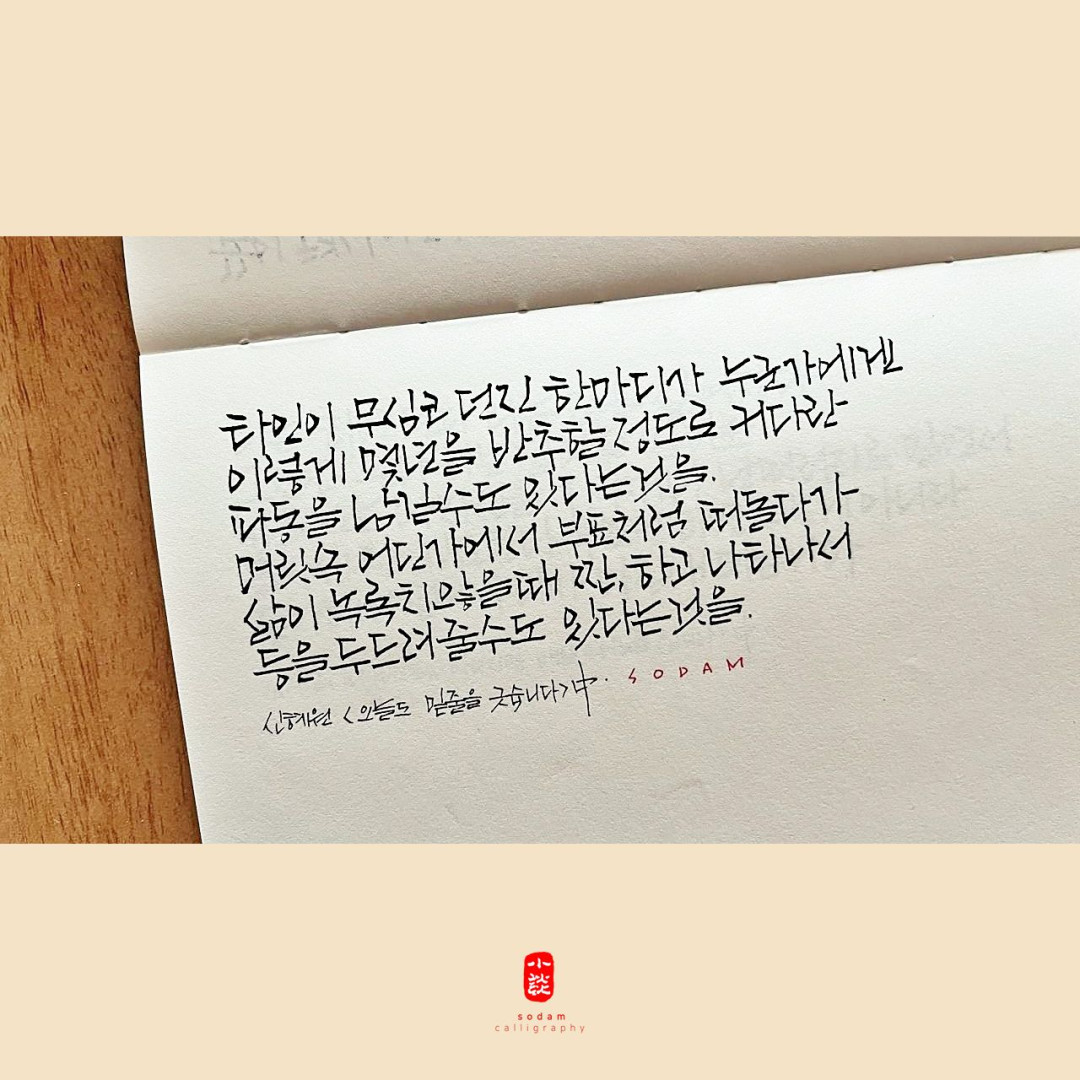 타인이 무심코 던진 한마디가 누군가에겐
이렇게 몇년을 반추할 정도로 커다란
파동을 남길수도 있다는것을.
머릿속 어딘가에서 부표처럼 떠돌다가
삶이 녹록치않을때 짠, 하고 나타나서
등을 두드려줄수도 있다는것을.
신혜원 <오늘도 밑줄을 긋습니다> 中. SODAM
小談
sodam
calligraphy